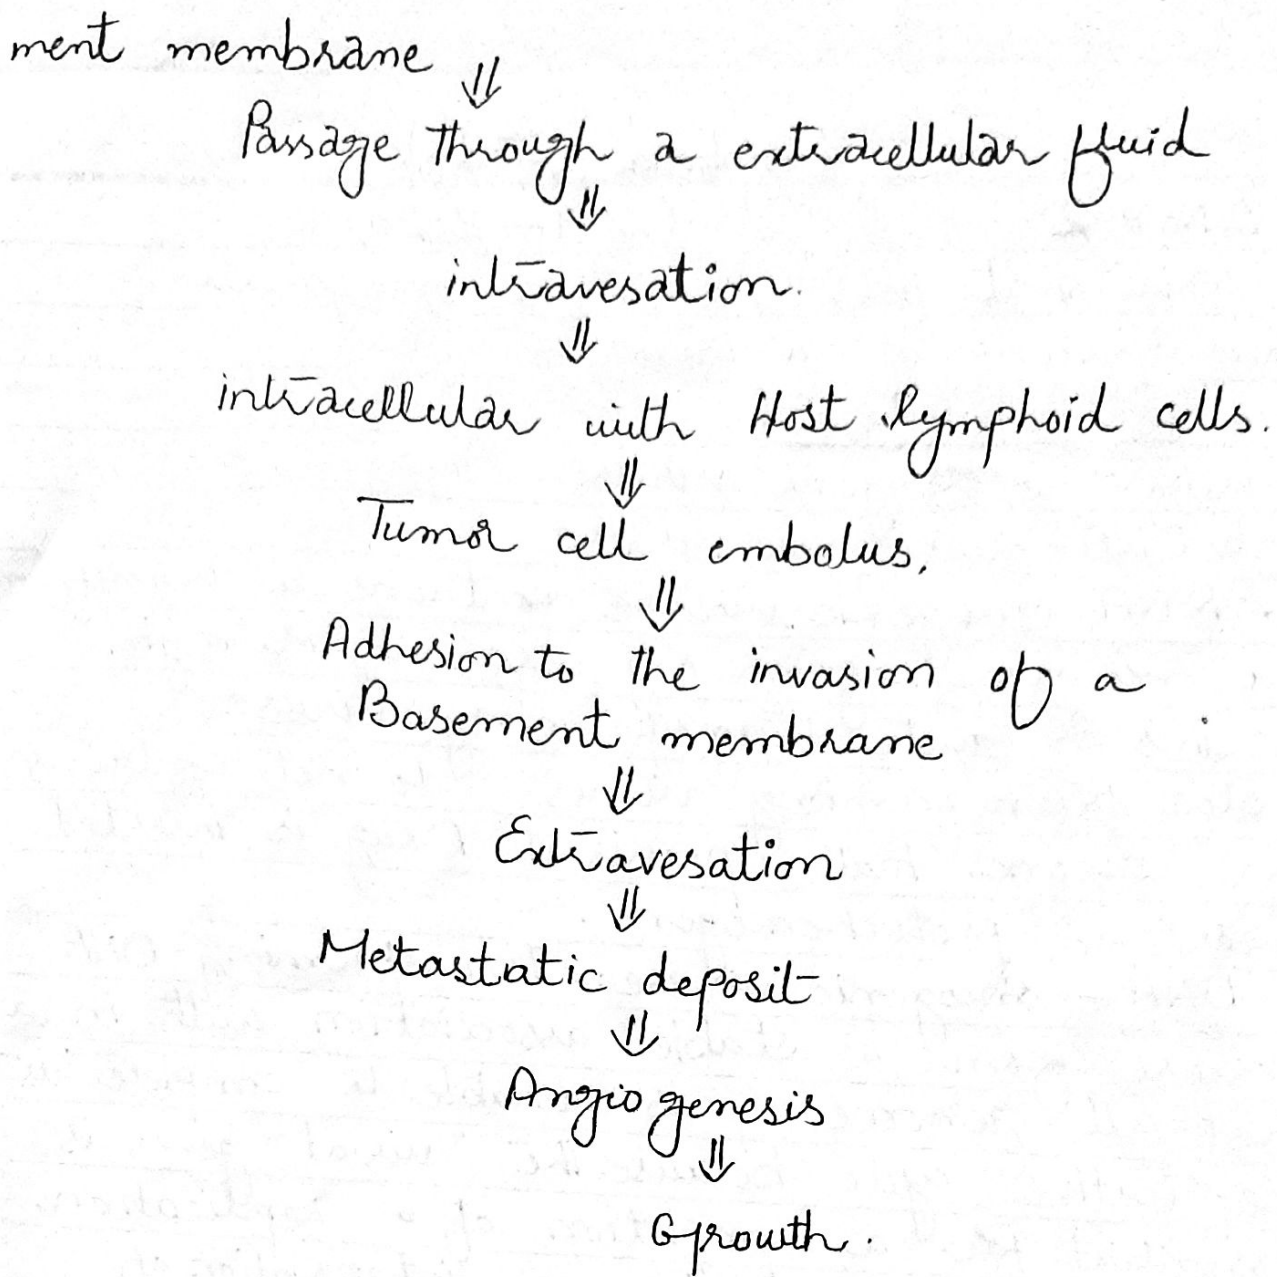 ment membrane
⇓
Passage through a extracellular fluid
⇓
intravesation.
⇓
intracellular with Host lymphoid cells.
⇓
Tumor cell embolus,
⇓
Adhesion to the invasion of a
Basement membrane
⇓
Extravesation
⇓
Metastatic deposit
⇓
Angio genesis
⇓
Growth.